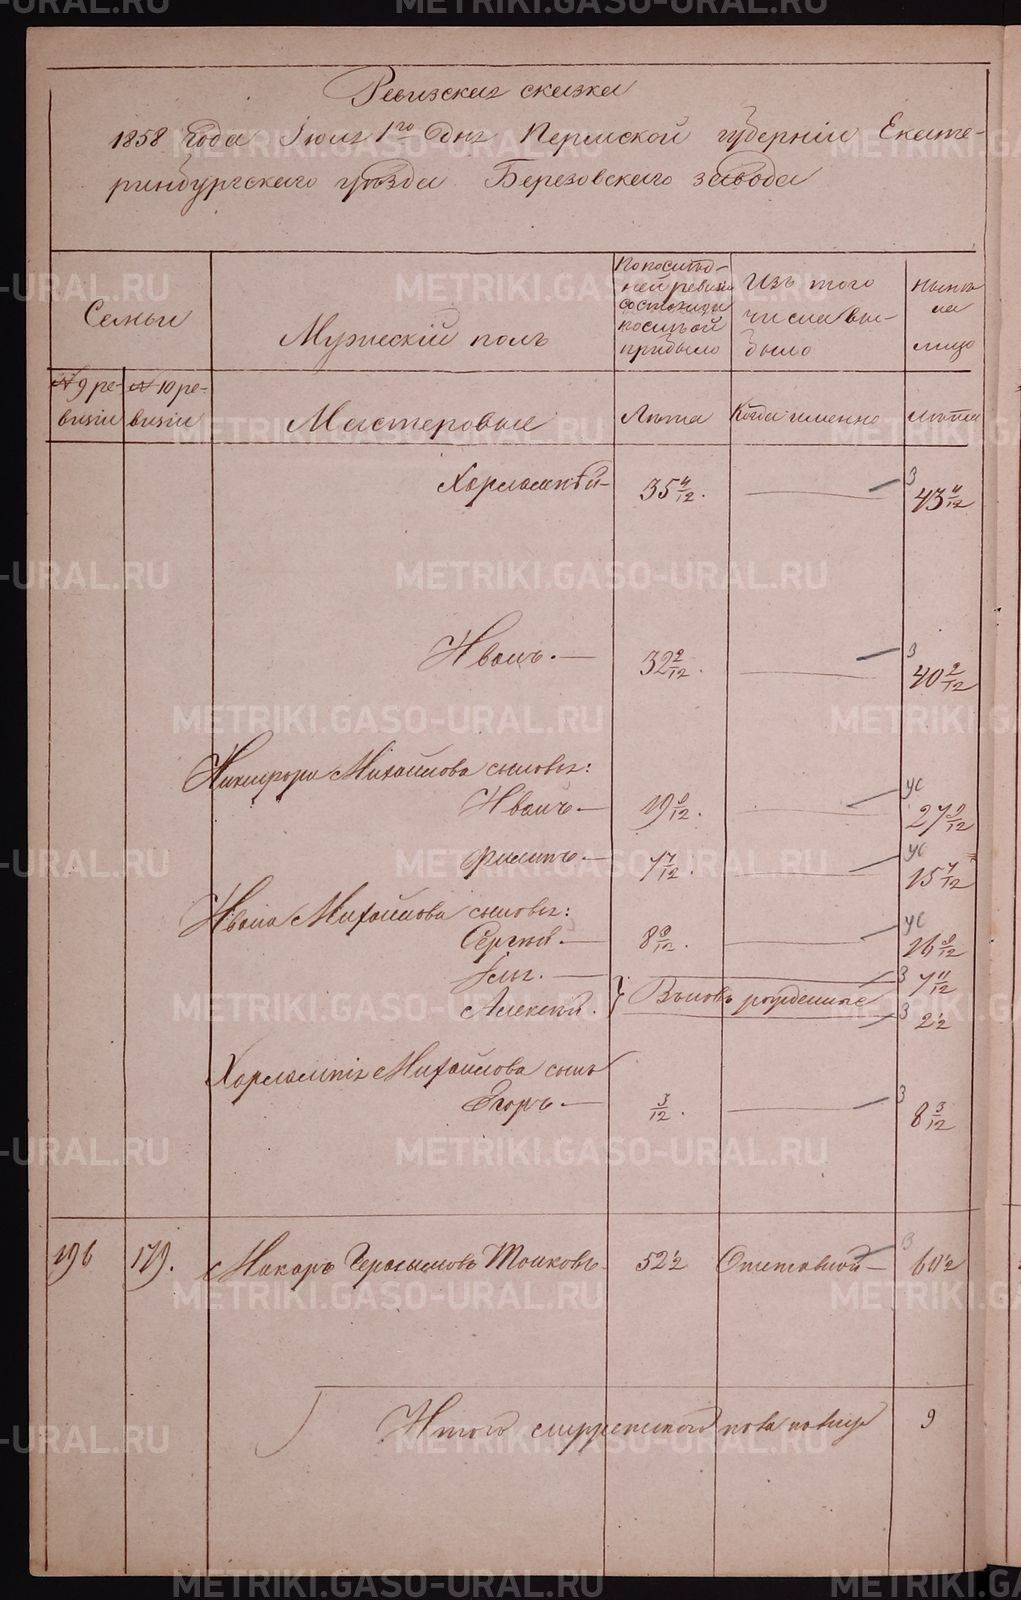 Ревизская сказка
1858 года Июля 1го дня Пермской губернiи Екате-
ринбургского уѣзда Березовскаго завода
Семьи
Мужескiй полъ
По послѣд-
ней ревизiи
состояло и
послѣ ой
прибыло
Изъ того
числа вы-
было
Нынѣ
на
лицо
№ 9 ре-
визiи
№ 10 ре-
визiи
Мастеровые
Лѣта
Когда именно
Лѣта
Харлампiй 35 4/12. 3 43 4/12
Иванъ. 32 2/12. 3 40 2/12
Никифора Михайлова сыновья:
Иванъ 19 9/12. ус 27 9/12
Филипъ 7 7/12. ус 15 7/12
Ивана Михайлова сыновья:
Сергѣй. 8 8/12. ус 16 8/12
Илья. 3 7 11/12
Вновь рожденные
Алексѣй. 3 2 1/2
Харлампiя Михайлова сынъ
Егоръ 3/12. 3 8 3/12
196 179. Макаръ Герасимовъ Токовъ 52 1/2 Отставной 3 60 1/2
Итого мужескаго пола на лицо 9
METRIKI.GASO-URAL.RU